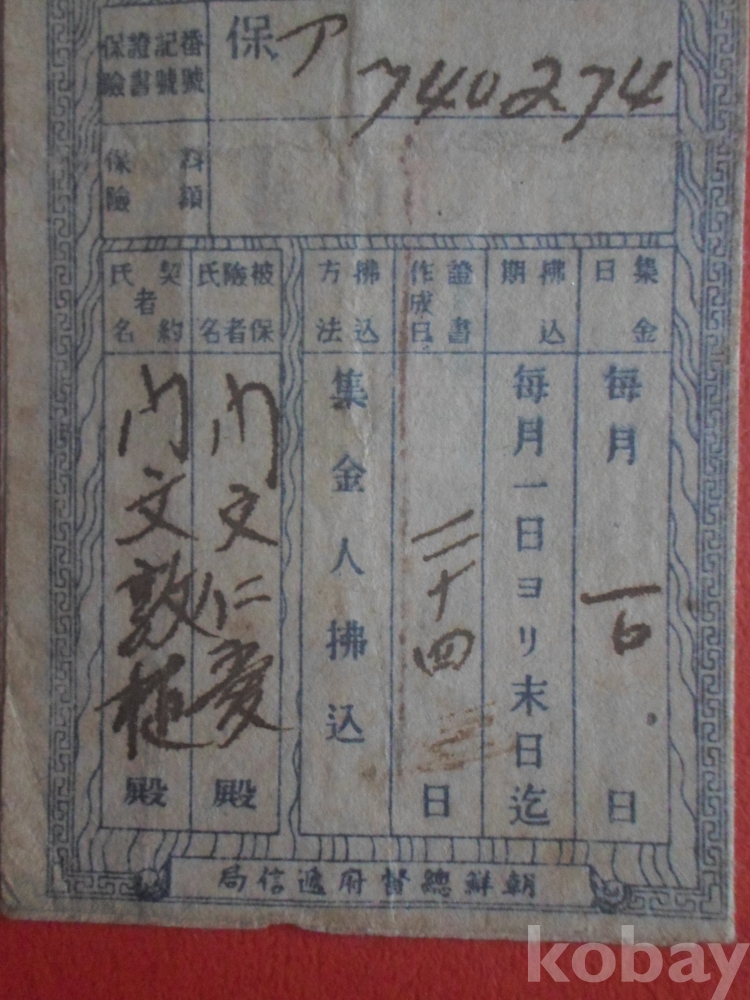 保險證書記號番號
保ア
740274
保險料額
集金日
每月 一日 日
拂込期
每月一日ヨリ末日迄
證書作成日
二十四 日
拂込方法
集金人拂込
被保險者氏名
文仁愛 殿
契約者氏名
文敦植 殿
朝鮮總督府遞信局
kobay